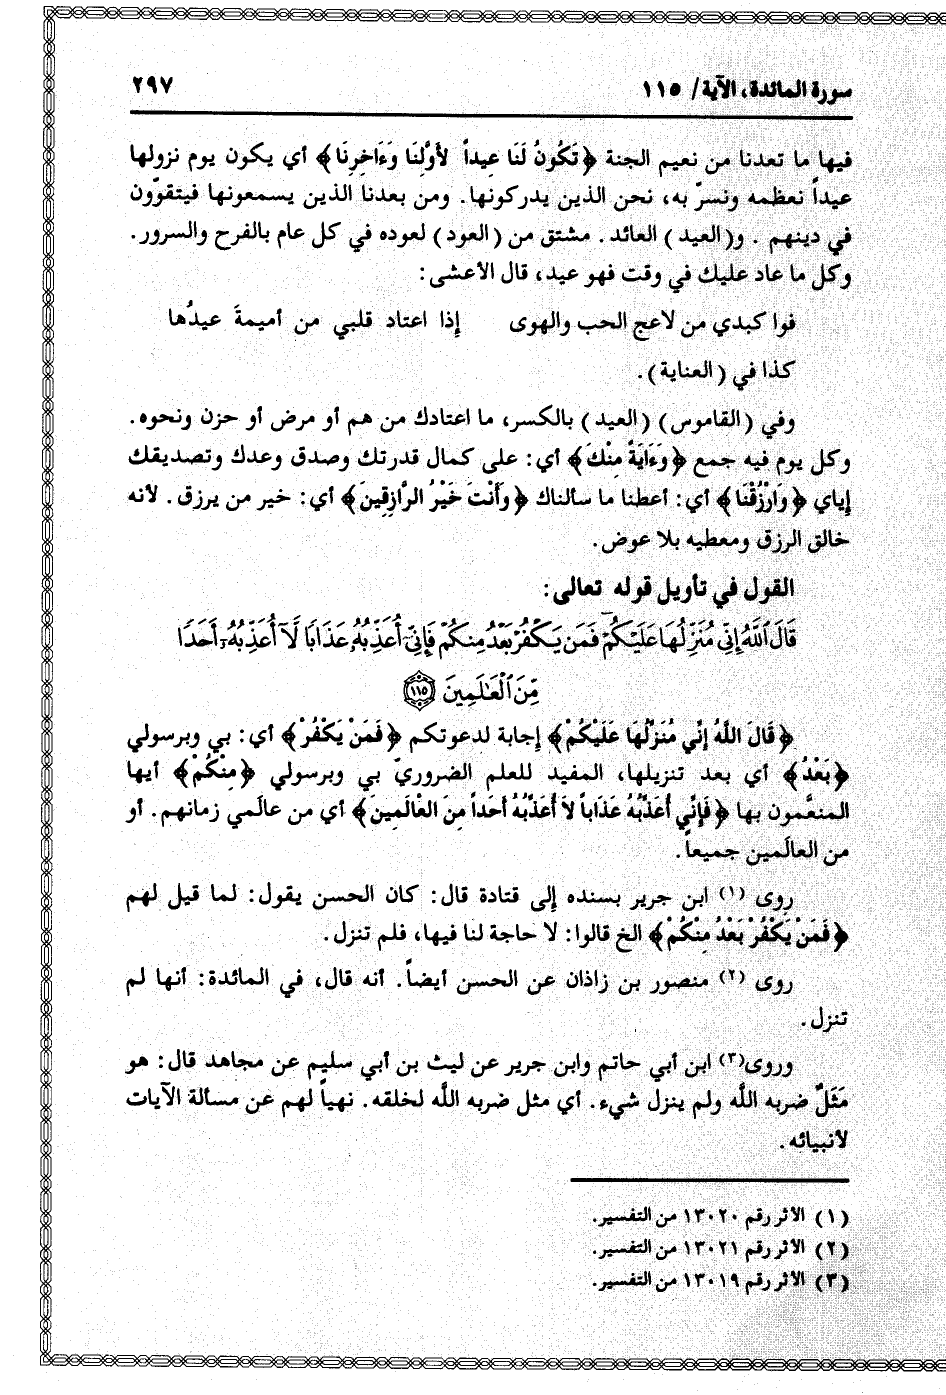 سورة المائدة، الآية/ ١١٥
٢٩٧
فيها ما تعدنا من نعيم الجنة ﴿تَكُونُ لَنَا عِيداً لأَوَّلِنَا وَءَاخِرِنَا﴾ أي يكون يوم نزولها
عيداً نعظمه ونسرّ به، نحن الذين يدركونها. ومن بعدنا الذين يسمعونها فيتقوّون
في دينهم . و(العيد) العائد. مشتق من (العود) لعوده في كل عام بالفرح والسرور.
وكل ما عاد عليك في وقت فهو عيد، قال الأعشى:
فوا كبدي من لاعج الحب والهوى إذا اعتاد قلبي من أميمةَ عيدُها
كذا في (العناية).
وفي (القاموس) (العيد) بالكسر، ما اعتادك من هم أو مرض أو حزن ونحوه.
وكل يوم فيه جمع ﴿وَءَايَةً مِنْكَ﴾ أي: على كمال قدرتك وصدق وعدك وتصديقك
إياي ﴿وَارْزُقْنَا﴾ أي: أعطنا ما سألناك ﴿وَأَنْتَ خَيْرُ الرَّازِقِينَ﴾ أي: خير من يرزق. لأنه
خالق الرزق ومعطيه بلا عوض.
القول في تأويل قوله تعالى:
قَالَ ٱللَّهُ إِنِّي مُنَزِّلُهَا عَلَيْكُمْ ۖ فَمَن يَكْفُرْ بَعْدُ مِنكُمْ فَإِنِّيٓ أُعَذِّبُهُۥ عَذَابًا لَّآ أُعَذِّبُهُۥٓ أَحَدًا
مِّنَ ٱلْعَـٰلَمِينَ ﴿١١٥﴾
﴿قَالَ اللَّهُ إِنِّي مُنَزِّلُهَا عَلَيْكُمْ﴾ إجابة لدعوتكم ﴿فَمَنْ يَكْفُرْ﴾ أي: بي وبرسولي
﴿بَعْدُ﴾ أي بعد تنزيلها، المفيد للعلم الضروريّ بي وبرسولي ﴿مِنْكُمْ﴾ أيها
المنعَّمون بها ﴿فَإِنِّي أُعَذِّبُهُ عَذَاباً لاَ أُعَذِّبُهُ أَحَداً مِنَ الْعَالَمِينَ﴾ أي من عالَمي زمانهم. أو
من العالَمين جميعاً.
روى (١) ابن جرير بسنده إلى قتادة قال: كان الحسن يقول: لما قيل لهم
﴿فَمَنْ يَكْفُرْ بَعْدُ مِنْكُمْ﴾ الخ قالوا: لا حاجة لنا فيها، فلم تنزل.
روى (٢) منصور بن زاذان عن الحسن أيضاً. أنه قال، في المائدة: أنها لم
تنزل.
وروى(٣) ابن أبي حاتم وابن جرير عن ليث بن أبي سليم عن مجاهد قال: هو
مَثَلٌ ضربه اللَّه ولم ينزل شيء. أي مثل ضربه اللَّه لخلقه. نهياً لهم عن مسألة الآيات
لأنبيائه.
(١) الأثر رقم ١٣٠٢٠ من التفسير.
(٢) الأثر رقم ١٣٠٢١ من التفسير.
(٣) الأثر رقم ١٣٠١٩ من التفسير.